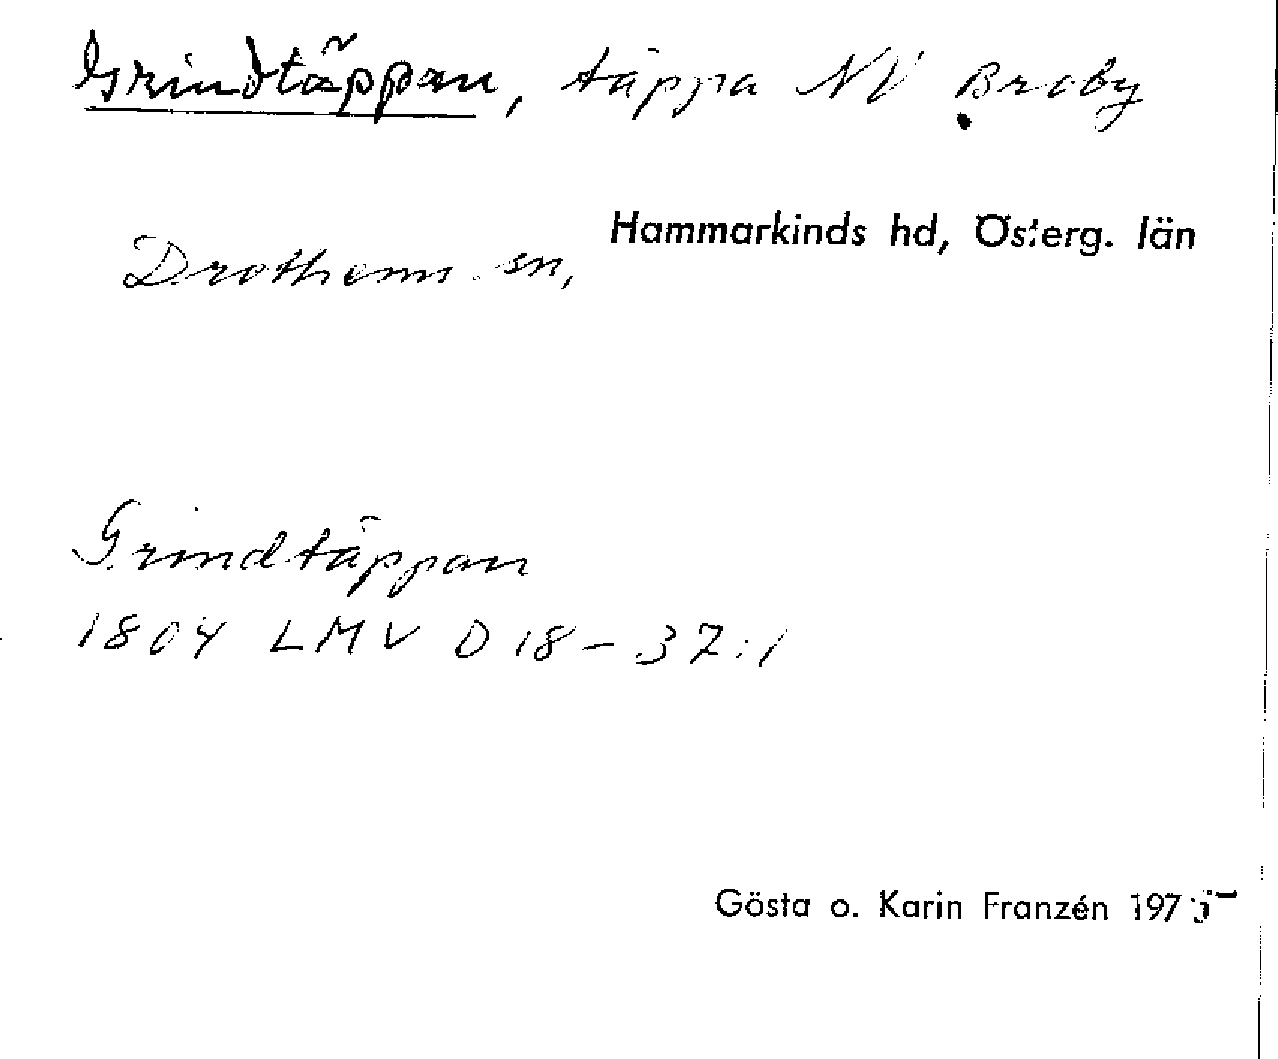 Grindtäppan, täppa NV Broby
Hammarkinds hd, Österg. län
Drothems sn,
Grindtäppan
1804 LMV D 18-37:1
Gösta o. Karin Franzén 1975